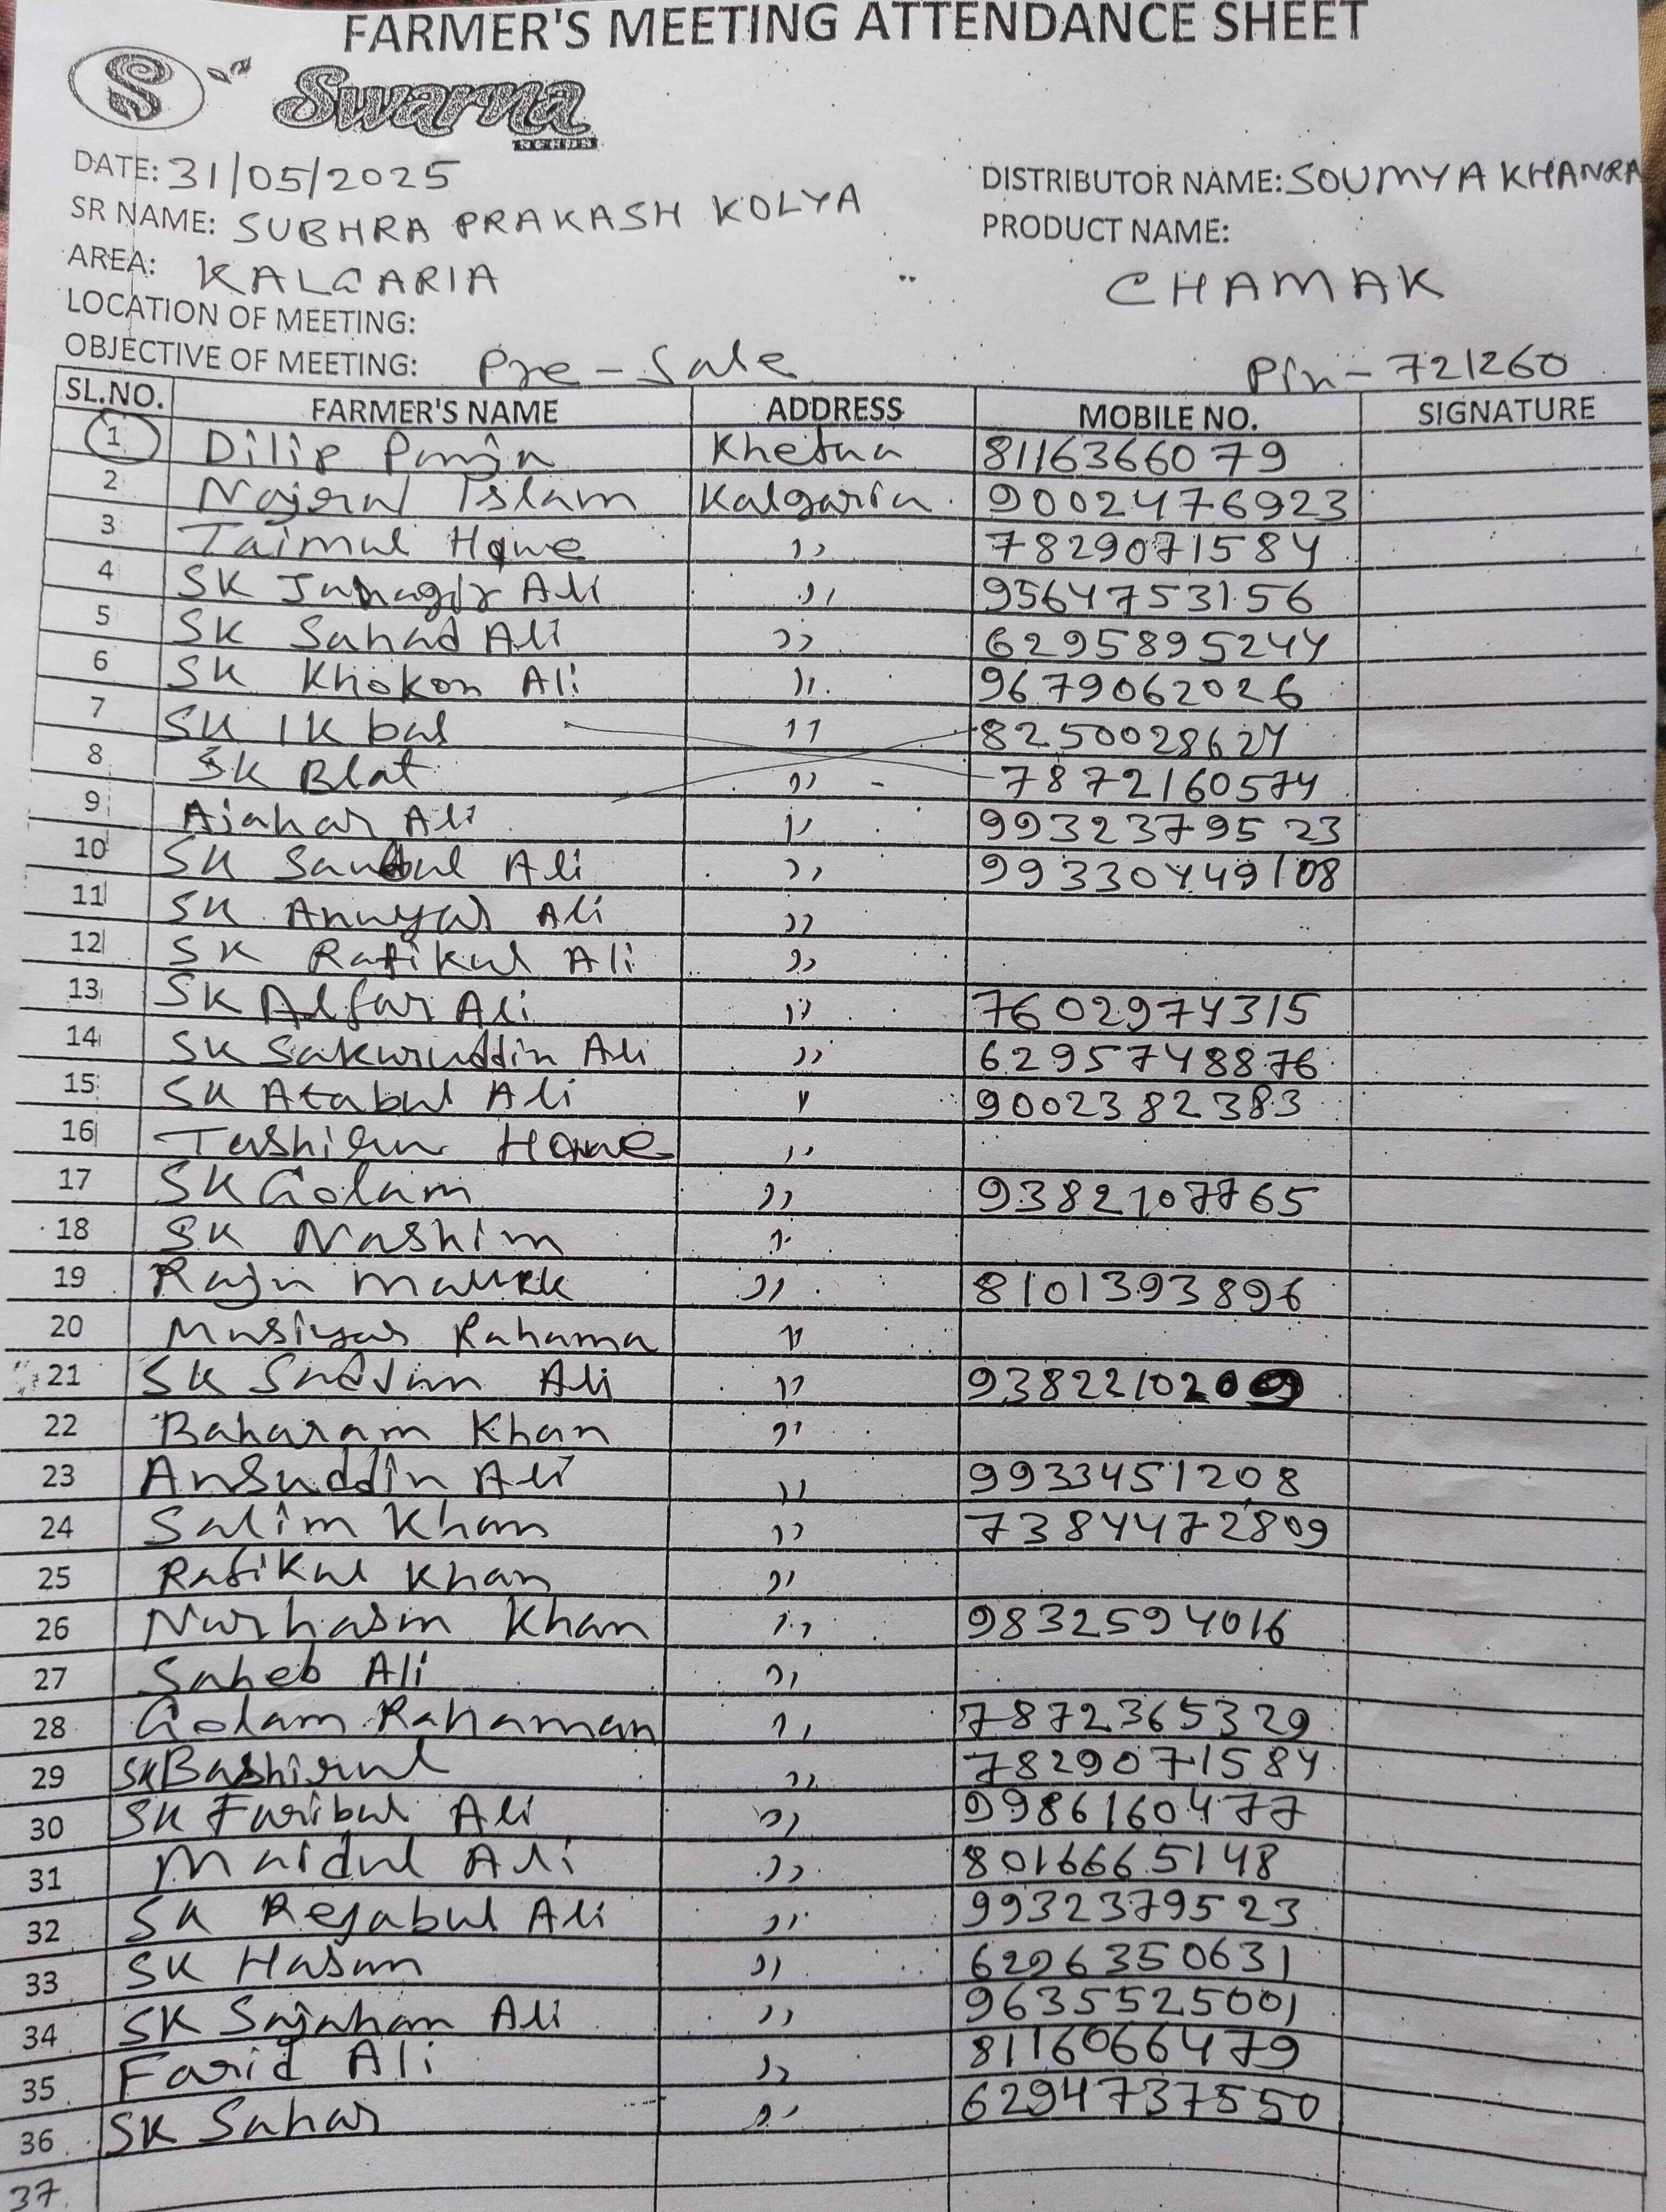 FARMER'S MEETING ATTENDANCE SHEET
S Swarna
SEEDS
DATE: 31/05/2025 DISTRIBUTOR NAME: SOUMYA KHANRA
SR NAME: SUBHRA PRAKASH KOLYA PRODUCT NAME:
AREA: KALGARIA CHAMAK
LOCATION OF MEETING:
OBJECTIVE OF MEETING: Pre-Sale Pin-721260
SL.NO. FARMER'S NAME ADDRESS MOBILE NO. SIGNATURE
1 Dilip Panja Khetua 8116366079
2 Nojerul Islam Kalgaria 9002476923
3 Taimul Hque ,, 7829071584
4 SK Jahagir Ali ,, 9564753156
5 SK Sahad Ali ,, 6295895244
6 SK Khokon Ali ,, 9679062026
7 SK Ikbal ,, 8250028624
8 SK Blat ,, 7872160574
9 Ajahar Ali ,, 9932379523
10 SK Ali ,, 99330449108
11 SK Anuyar Ali ,,
12 SK Rafikul Ali ,,
13 SK Alfar Ali ,, 7602974315
14 SK Sakuruddin Ali ,, 6295748876
15 SK Atabul Ali ,, 9002382383
16 Hque ,,
17 SK Golam ,, 9382107765
18 SK Nashim ,,
19 Raju Mallik ,, 8101393896
20 Rahama ,,
21 SK Saddam Ali ,, 9382210209
22 Baharam Khan ,,
23 Ansuddin Ali ,, 9933451208
24 Salim Khan ,, 7384472809
25 Rafikul Khan ,,
26 Nurhasin Khan ,, 9832594016
27 Saheb Ali ,,
28 Golam Rahaman ,, 7872365329
29 SK Bashirul ,, 7829071584
30 SK Faribul Ali ,, 9986160477
31 Maidul Ali ,, 8016665148
32 SK Rejabul Ali ,, 9932379523
33 SK Hasan ,, 6296350631
34 SK Sajahan Ali ,, 9635525001
35 Farid Ali ,, 8116066479
36 SK Sahar ,, 6294737550
37